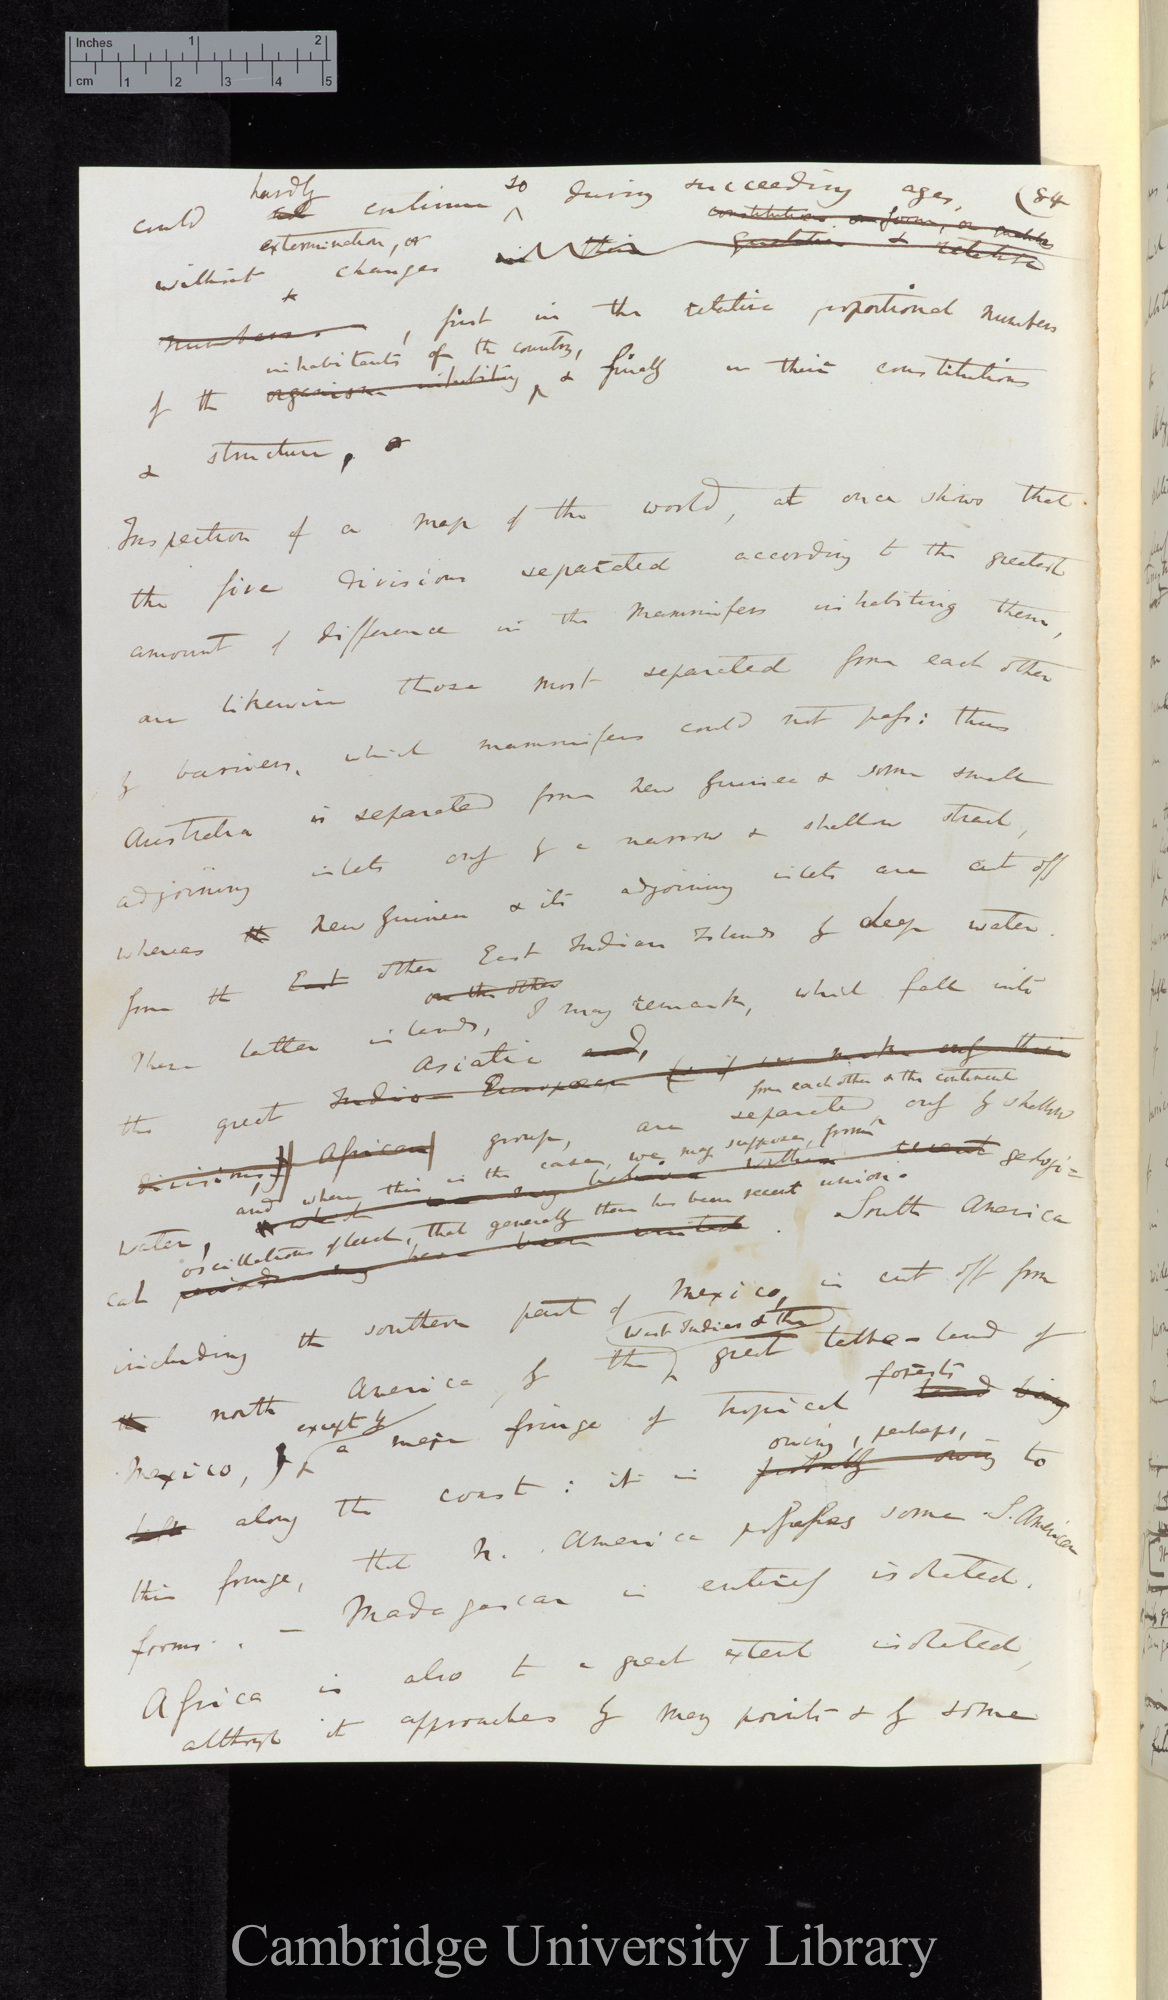 Inches 1 2
cm 1 2 3 4 5
(84
hardly so
could continue ^ during succeeding ages,
constitution or form, or
extermination, or
without changes in their & relative
numbers, first in the relative proportional numbers
inhabitants of the country,
of the organisms inhabiting ^ & finally in their constitutions
& structure, or
Inspection of a map of the world, at once shows that
the five divisions separated according to the greatest
amount of difference in the mammifers inhabiting them,
are likewise those most separated from each other
by barriers, which mammifers could not pass: thus
Australia is separated from New Guinea & some small
adjoining islets only by a narrow & shallow strait,
whereas th New Guinea & its adjoining islets are cut off
from the East other East Indian Islands by deep water.
on the other
These latter islands, I may remark, which fall into
Asiatic and,
the great Indio-European (if we make only three
from each other & the continent
divisions) African group, are separated only by shallow
and where this is the case, we may suppose, from
water, which we may believe within recent geologi=
oscillations of level, that generally there has been recent union.
cal periods may have been united. South America
including the southern part of Mexico, is cut off from
West Indies & the
th north America by the great table-land of
except by forests
Mexico, a mere fringe of tropical land being
owing, perhaps,
left along the coast: it is probably owing to
this fringe, that N. America possesses some S. American
forms. — Madagascar is entirely isolated.
Africa is also to a great extent isolated,
although it approaches by many points & by some
Cambridge University Library